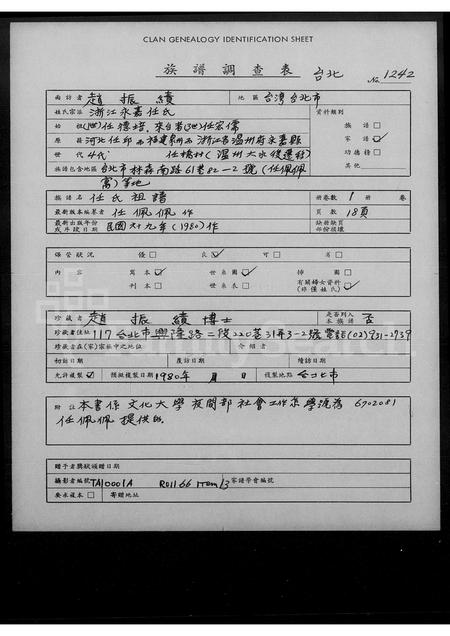 CLAN GENEALOGY IDENTIFICATION SHEET
族譜調查表 台北 No. 1242
面訪者 趙振績 地區 台灣台北市
姓氏宗派 浙江永嘉任氏 資料類別
始祖(1世)任德培,來台者(3世)任宏儒 族譜
原籍 河北任邱 福建泉州 浙江省溫州府永嘉縣 家譜 ☑
世代 4代 任橋村(溫州大水後遷移) 功德榜
族譜包含地區 台北市林森南路61巷22-2號(任佩佩 其他
寓)等地
族譜名 任氏祖譜 冊卷數 1 冊 卷
最新版本編纂者 任佩佩作 頁數 18頁
最新出版年份或手段日期 民國六十九年(1980)作 缺冊缺頁部份損壞
保管狀況 優 良 ☑ 可 劣
內容 寫本 ☑ 世系圖 ☑ 排圖 有關婦女資料(非僅姓氏) ☑
刊本 世系表
珍藏者 趙振績博士 是否列入本族譜 否
珍藏者住址 117台北市興隆路二段220巷31弄3-2號 電話(02)931-2739
珍藏者在(家)宗祉中之地位 介紹者
初訪日期 度訪日期 續訪日期
允許複製 ☑ 擬複製日期 1980年 月 日 複製地點 台北市
附註 本書係文化大學夜間部社會工作系學號為 6702081
任佩佩提供的.
贈予者獎狀頒贈日期
攝影者編號 TA10001A R01166 ITem 13 家譜學會編號
要求複本 寄贈地址